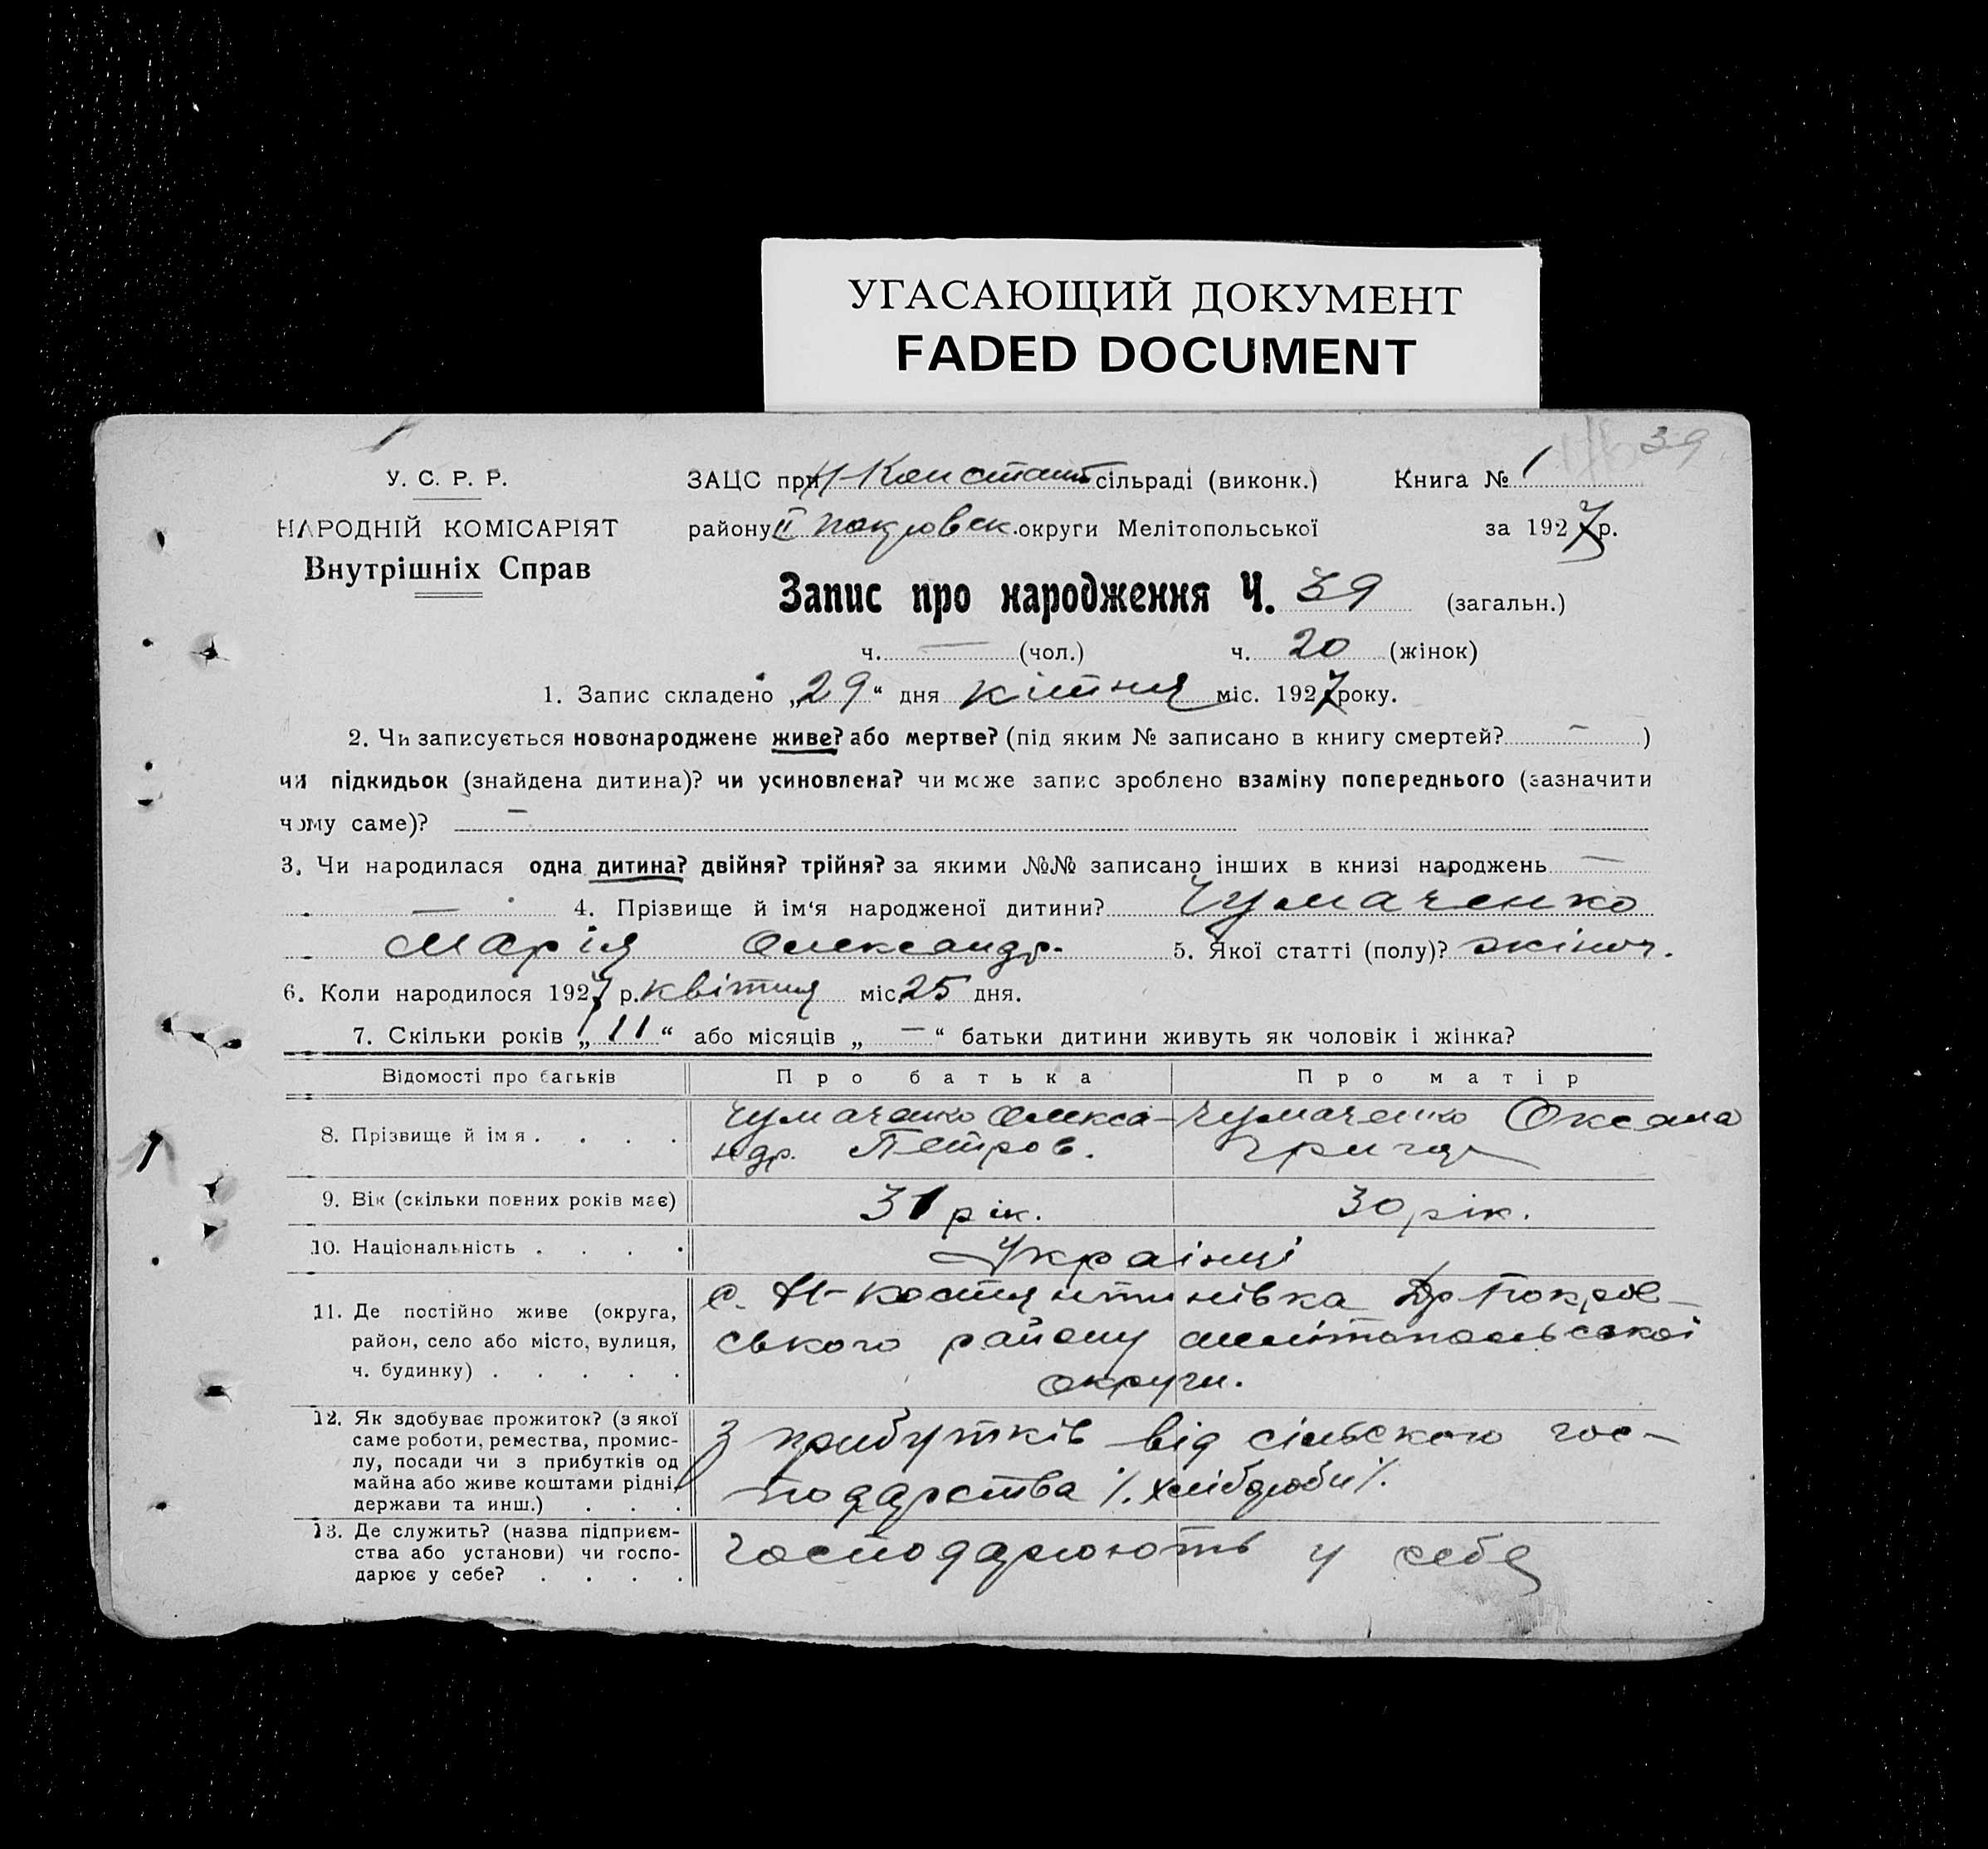 УГАСАЮЩИЙ ДОКУМЕНТ
FADED DOCUMENT
39
У. С. Р. Р.
НАРОДНІЙ КОМІСАРІЯТ
Внутрішніх Справ
ЗАЦС при Н-Констант сільраді (виконк.) Книга № 1
району ІІ покровск. округи Мелітопольської за 1927 р.
Запис про народження Ч. 39 (загальн.)
ч. — (чол.) ч. 20 (жінок)
1. Запис складено „29“ дня кітня міс. 1927 року.
2. Чи записується новонароджене живе? або мертве? (під яким № записано в книгу смертей? — )
чи підкидьок (знайдена дитина)? чи усиновлена? чи може запис зроблено взаміну попереднього (зазначити
чому саме)? —
3. Чи народилася одна дитина? двійня? трійня? за якими №№ записано інших в книзі народжень —
— 4. Прізвище й ім‘я народженої дитини? Чумаченко
Марія Олександр. 5. Якої статті (полу)? жіноч.
6. Коли народилося 1927 р. квітня міс. 25 дня.
7. Скільки років „11“ або місяців „—“ батьки дитини живуть як чоловік і жінка?
Відомості про батьків Про батька Про матір
8. Прізвище й імя . . . . Чумаченко Олекса- Чумаченко Оксана
ндр. Петров. Григор
9. Вік (скільки повних років має) 31 рік. 30 рік.
10. Національність . . . . Українці
11. Де постійно живе (округа, район, село або місто, вулиця, ч. будинку) . . . . .
с. Н-Костянтинівка Покров-
ського району мелітопольської
округи.
12. Як здобуває прожиток? (з якої саме роботи, ремества, промис-
лу, посади чи з прибутків од
майна або живе коштами рідні,
держави та инш.) . . .
З прибутків від сільского гос-
подарства /. хлібороби /.
13. Де служить? (назва підприєм-
ства або установи) чи госпо-
дарює у себе? . . . .
Господарюють у себе